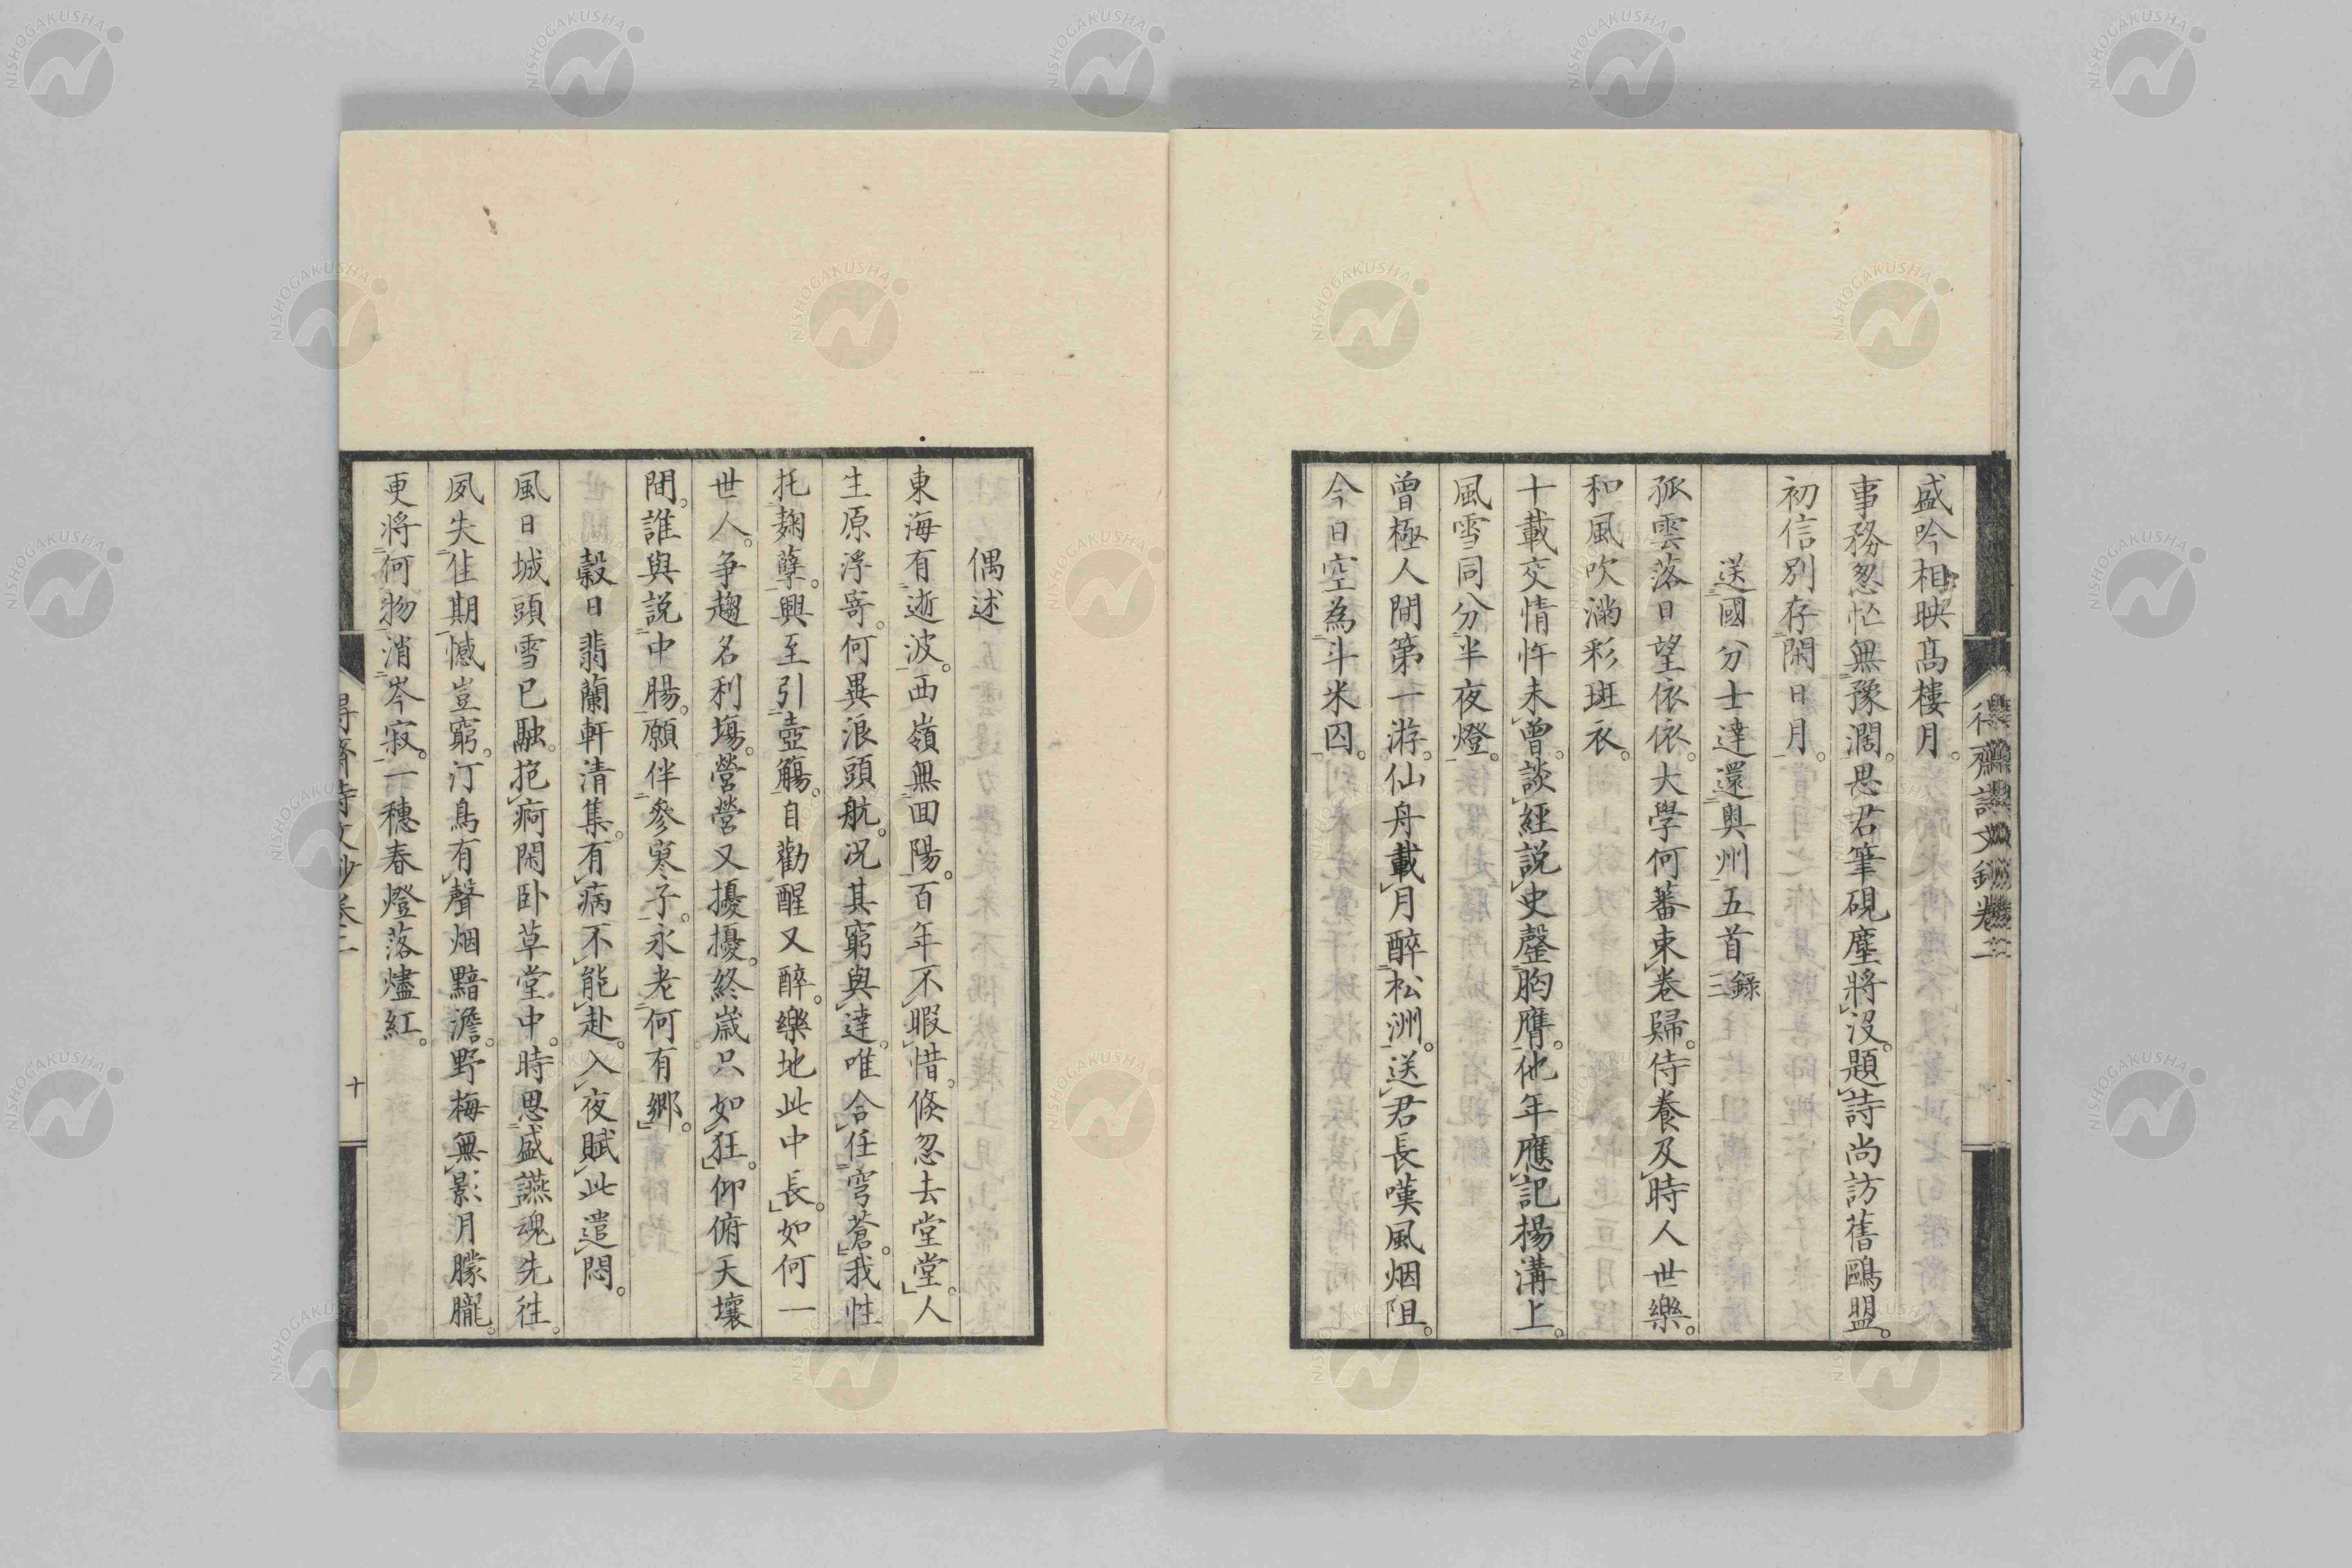 盛吟相映髙樓月。
事務怱忙無豫濶。思君筆硯塵將沒。題詩尚訪舊鷗盟。
初信別存閑日月。
送國分士達還奥州五首錄三
孤雲落日望依依。大學何蕃東卷歸。侍養及時人世樂。
和風吹滿彩斑衣。
十載交情忤未曾。談經説史罄胸膺。他年應記楊溝上。
風雪同分半夜燈。
曾極人間第一游。仙舟載月醉松洲。送君長嘆風烟阻。
今日空為斗米囚。
偶述
東海有逝波。西嶺無回陽。百年不暇惜。倏忽去堂堂。人
生原浮寄。何異浪頭航。況其窮與達。唯合任穹蒼。我性
托麹蘖。興至引壺觴。自勸醒又醉。樂地此中長。如何一
世人。争趨名利塲。營營又擾擾。終歳只如狂。仰俯天壤
間。誰與説中腸。願伴參寥子。永老何有郷。
穀日翡蘭軒清集。有病不能赴。入夜賦此遣悶。
風日城頭雪已融。抱痾閑卧草堂中。時思盛讌魂先往。
夙失佳期憾豈窮。汀鳥有聲烟黯澹。野梅無影月朦朧。
更將何物消岑寂。一穗春燈落燼紅。
十
NISHOGAKUSHA